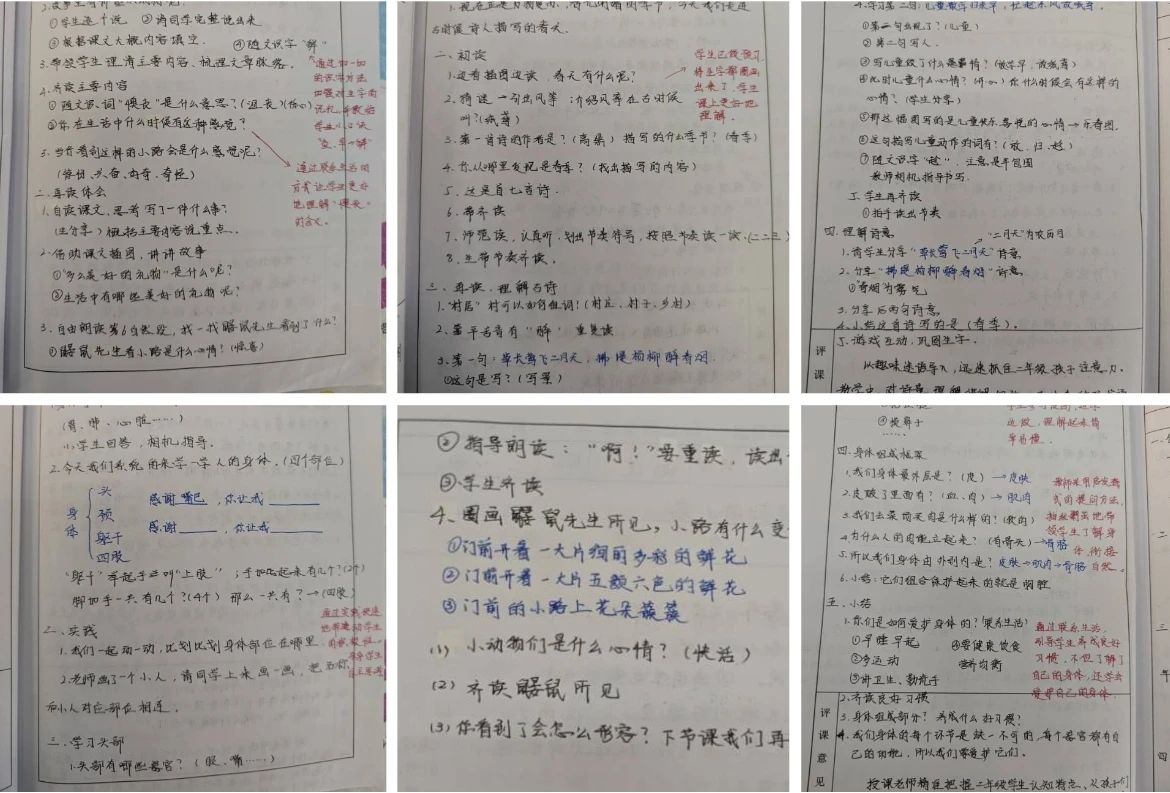 ①学生逐个说 ②请同学完整说出来
③根据课文大概内容填空. ④随文识字"鼹"
3.带领学生理清主要内容、梳理文章脉络.
4.片段主要内容
①随文识词"懊丧"是什么意思?
②你在生活中什么时候有这种感觉?
5.当你看到这样的小路会是什么感觉呢?
二.再读体会
1.自读课文,思考写了一件什么事?
(生分享)概括主要内容说重点.
2.借助课文插图,讲讲故事
①"多么美好的礼物"是什么呢?
②生活中有哪些美好的礼物呢?
3.自由朗读第6自然段,找一找鼹鼠先生看到了什么?
①鼹鼠先生看小路是什么心情?(惊喜)
通过联系生活的
方式让学生更好
地理解"懊丧"
的含义.
古时候诗人描写的春天.
二、初读
1.边看插图边读,春天有什么呢?
2.猜谜—引出风筝 介绍风筝在古时候
叫?(纸鸢)
3.第一首诗的作者是?(高鼎)描写的什么季节?(春季)
4.你从哪里发现是春季?(找出描写的内容)
5.这是首七言诗.
6.带齐读
7.师范读,认真听,划出节奏符号,按照节奏读一读.(二二三)
8.生带节奏齐读.
三、再读、理解古诗
1."村居"村可以如何组词?(村庄、村子、乡村)
2.整平舌音有"醉"重复读
3.第一句:草长莺飞二月天,拂堤杨柳醉春烟.
①这句是写?(写景)
学生已做预习,
将生字都圈画
出来了,学生
课上更好地
理解.
4.学习第二句:儿童散学归来早,忙趁东风放纸鸢.
①第二句出现了?(儿童)
②第二句写人.
③写儿童做了什么事情?(放学早,放纸鸢)
④此时儿童什么心情?(开心)你什么时候会有这样的
心情?(学生分享)
⑤那这幅图写的是儿童快乐喜悦的心情→乐春图.
⑥这句描写儿童动作的词有?(放、归、趁)
⑦随文识字"趁".注意是半包围
教师相机指导书写.
5.学生再齐读
①拍手读出节奏
四.理解诗意 "二月天"为农历月
1.请学生分享"草长莺飞二月天"诗意.
2.分享"拂堤杨柳醉春烟"诗意
①春烟为雾气
3.分享后两句诗意.
4.小结这首诗写的是(春季).
5.游戏互动,巩固生字.
评
课
从趣味迷语导入,迅速抓住二年级孩子注意力.
(胃、肺、心脏……)
(1)学生回答,相机指导.
2.今天我们系统的来学一学人的身体.(四个部位)
身体
头 感谢嘴巴,你让我
颈
躯干 感谢 ,你让我
四肢
"躯干"举起手叫"上肢" ;手加起来有几个?(2个)
脚加手一共有几个?(4个)那么一共有?→(四肢)
二、实践
1.我们一起动一动,比划比划身体部位在哪里.
2.老师画了一个小人,请同学上来画一画,把名称
和小人对应部位相连.
三、学习头部
1.头部有哪些器官?(眼、嘴……)
②指导朗读:"啊!"要重读,读出
③学生齐读
4、圈画鼹鼠先生所见,小路有什么变
①门前开着一大片绚丽多彩的鲜花
②门前开着一大片五颜六色的鲜花
③门前的小路上花朵簇簇
(1)小动物们是什么心情?(快活)
(2)齐读鼹鼠所见
(3)你看到了会怎么形容?下节课我们再
四.身体组成框架
1.我们身体最外层是?(皮)→皮肤
2.皮破了里面有?(血、肉)→肌肉
3.我们去菜场买肉是什么样的?(软的)
4.为什么人的肉能立起来?(有骨头)→骨骼
5.所以我们身体由外到内是?皮肤→肌肉→骨骼
6.小结:它们组合保护起来的就是胸腔
五、小结
1.你们是如何爱护身体的?(联系生活)
①早睡早起 ④要健康饮食
②多运动 营养均衡
③讲卫生、勤洗手
通过联系生活,
引导学生养成良好
习惯,不但了解了
自己的身体,还学会
爱护自己的身体.
2.齐读良好习惯
3.身体组成部分?养成什么好习惯?
4.我们身体的每个环节是缺一不可的,每个器官都有自
己的功能,所以我们要爱护它们.
评
课
意
见
授课老师精准把握二年级学生认知特点、从孩子们